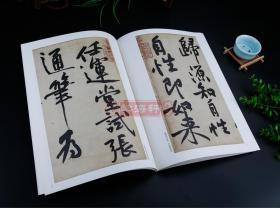 歸源知自性
自性即如来
任運堂試張
通筆為